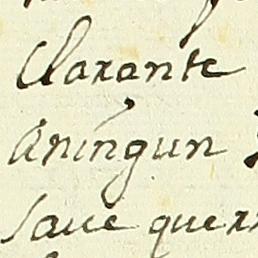 Clarante
Aningun
saue quer